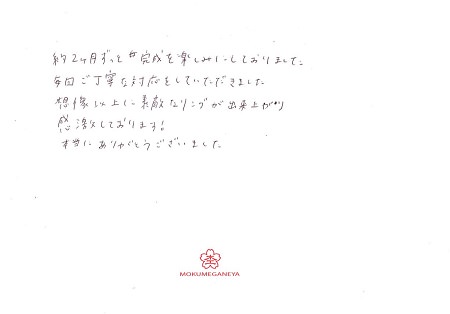 約2ヶ月ずっと完成を楽しみにしておりました。
毎回ご丁寧な対応をしていただきました
想像以上に素敵なリングが出来上がり
感激しております!
本当にありがとうございました。
MOKUMEGANEYA